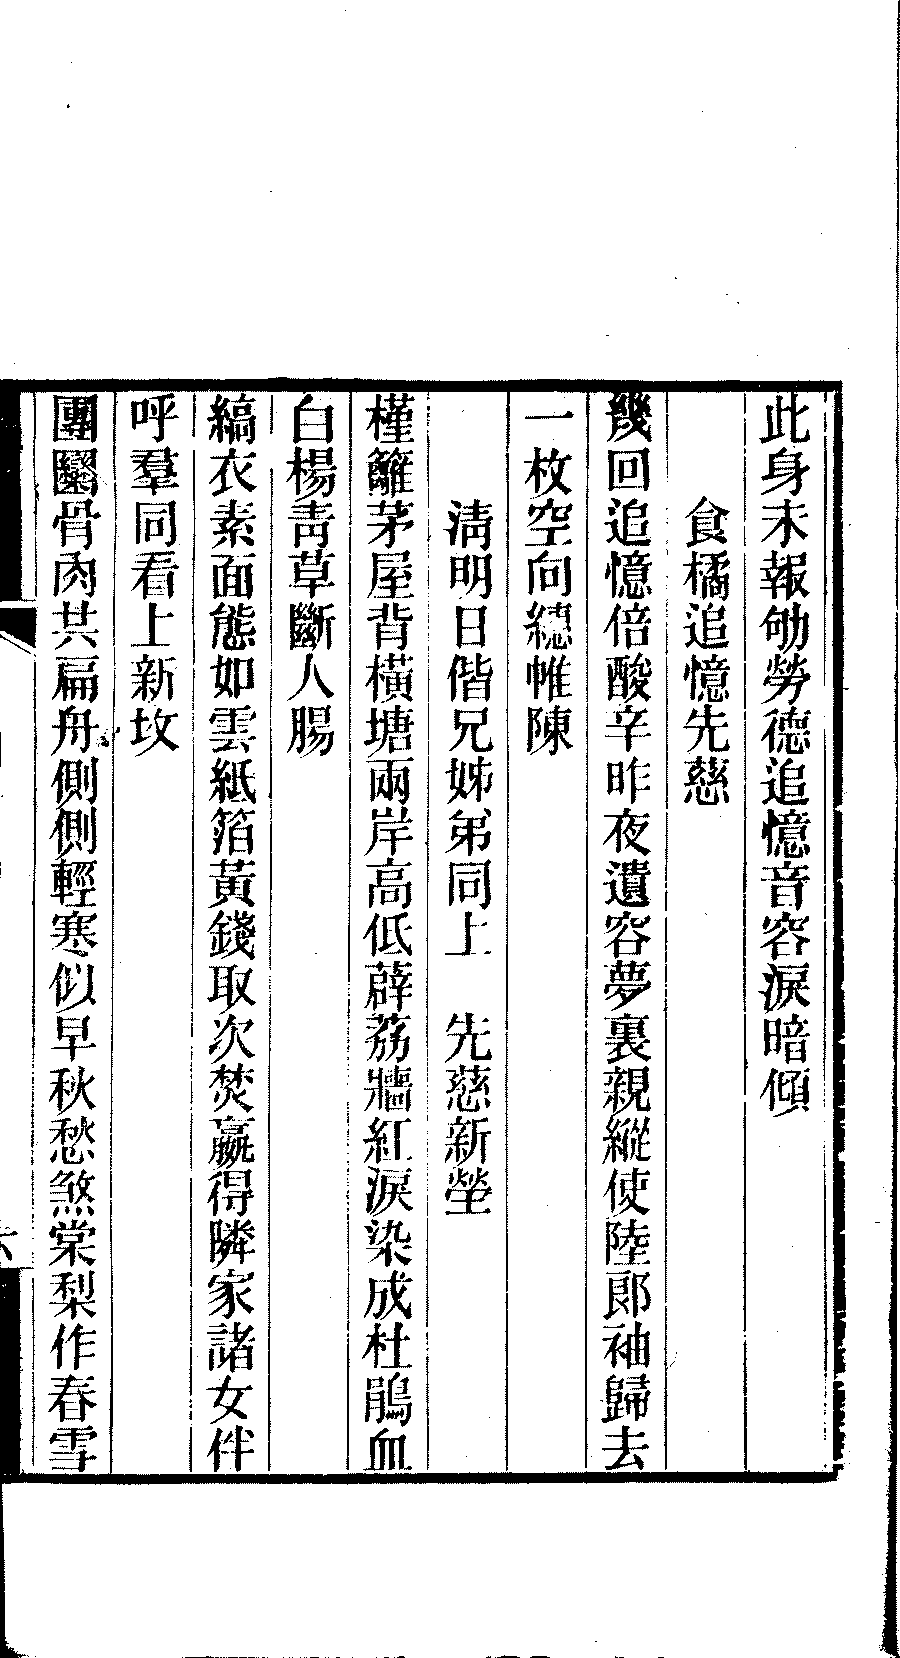 此身未報劬勞德追憶音容淚暗傾
食橘追憶先慈
幾回追憶倍酸辛昨夜遺容夢裏親縱使陸郎袖歸去
一枚空向繐帷陳
淸明日偕兄姊弟同上　先慈新塋
槿籬茅屋背橫塘兩岸高低薜荔牆紅淚染成杜鵑血
白楊靑草斷人腸
縞衣素面態如雲紙箔黃錢取次焚嬴得隣家諸女伴
呼羣同看上新坟
團圞骨肉共扁舟側側輕寒似早秋愁煞棠梨作春雪